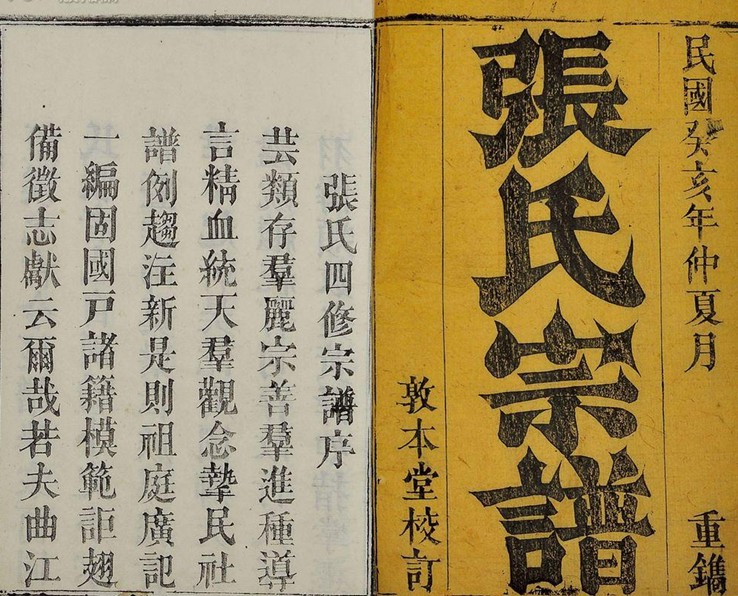 民國癸亥年仲夏月 重鐫
張氏宗譜
敦本堂校訂
張氏四修宗譜序
芸類存羣麗宗善羣進種導
言精血統天羣觀念摯民社
譜例趨注新是則祖庭廣記
一編固國戸諸籍模範詎翅
備徵志獻云爾哉若夫曲江